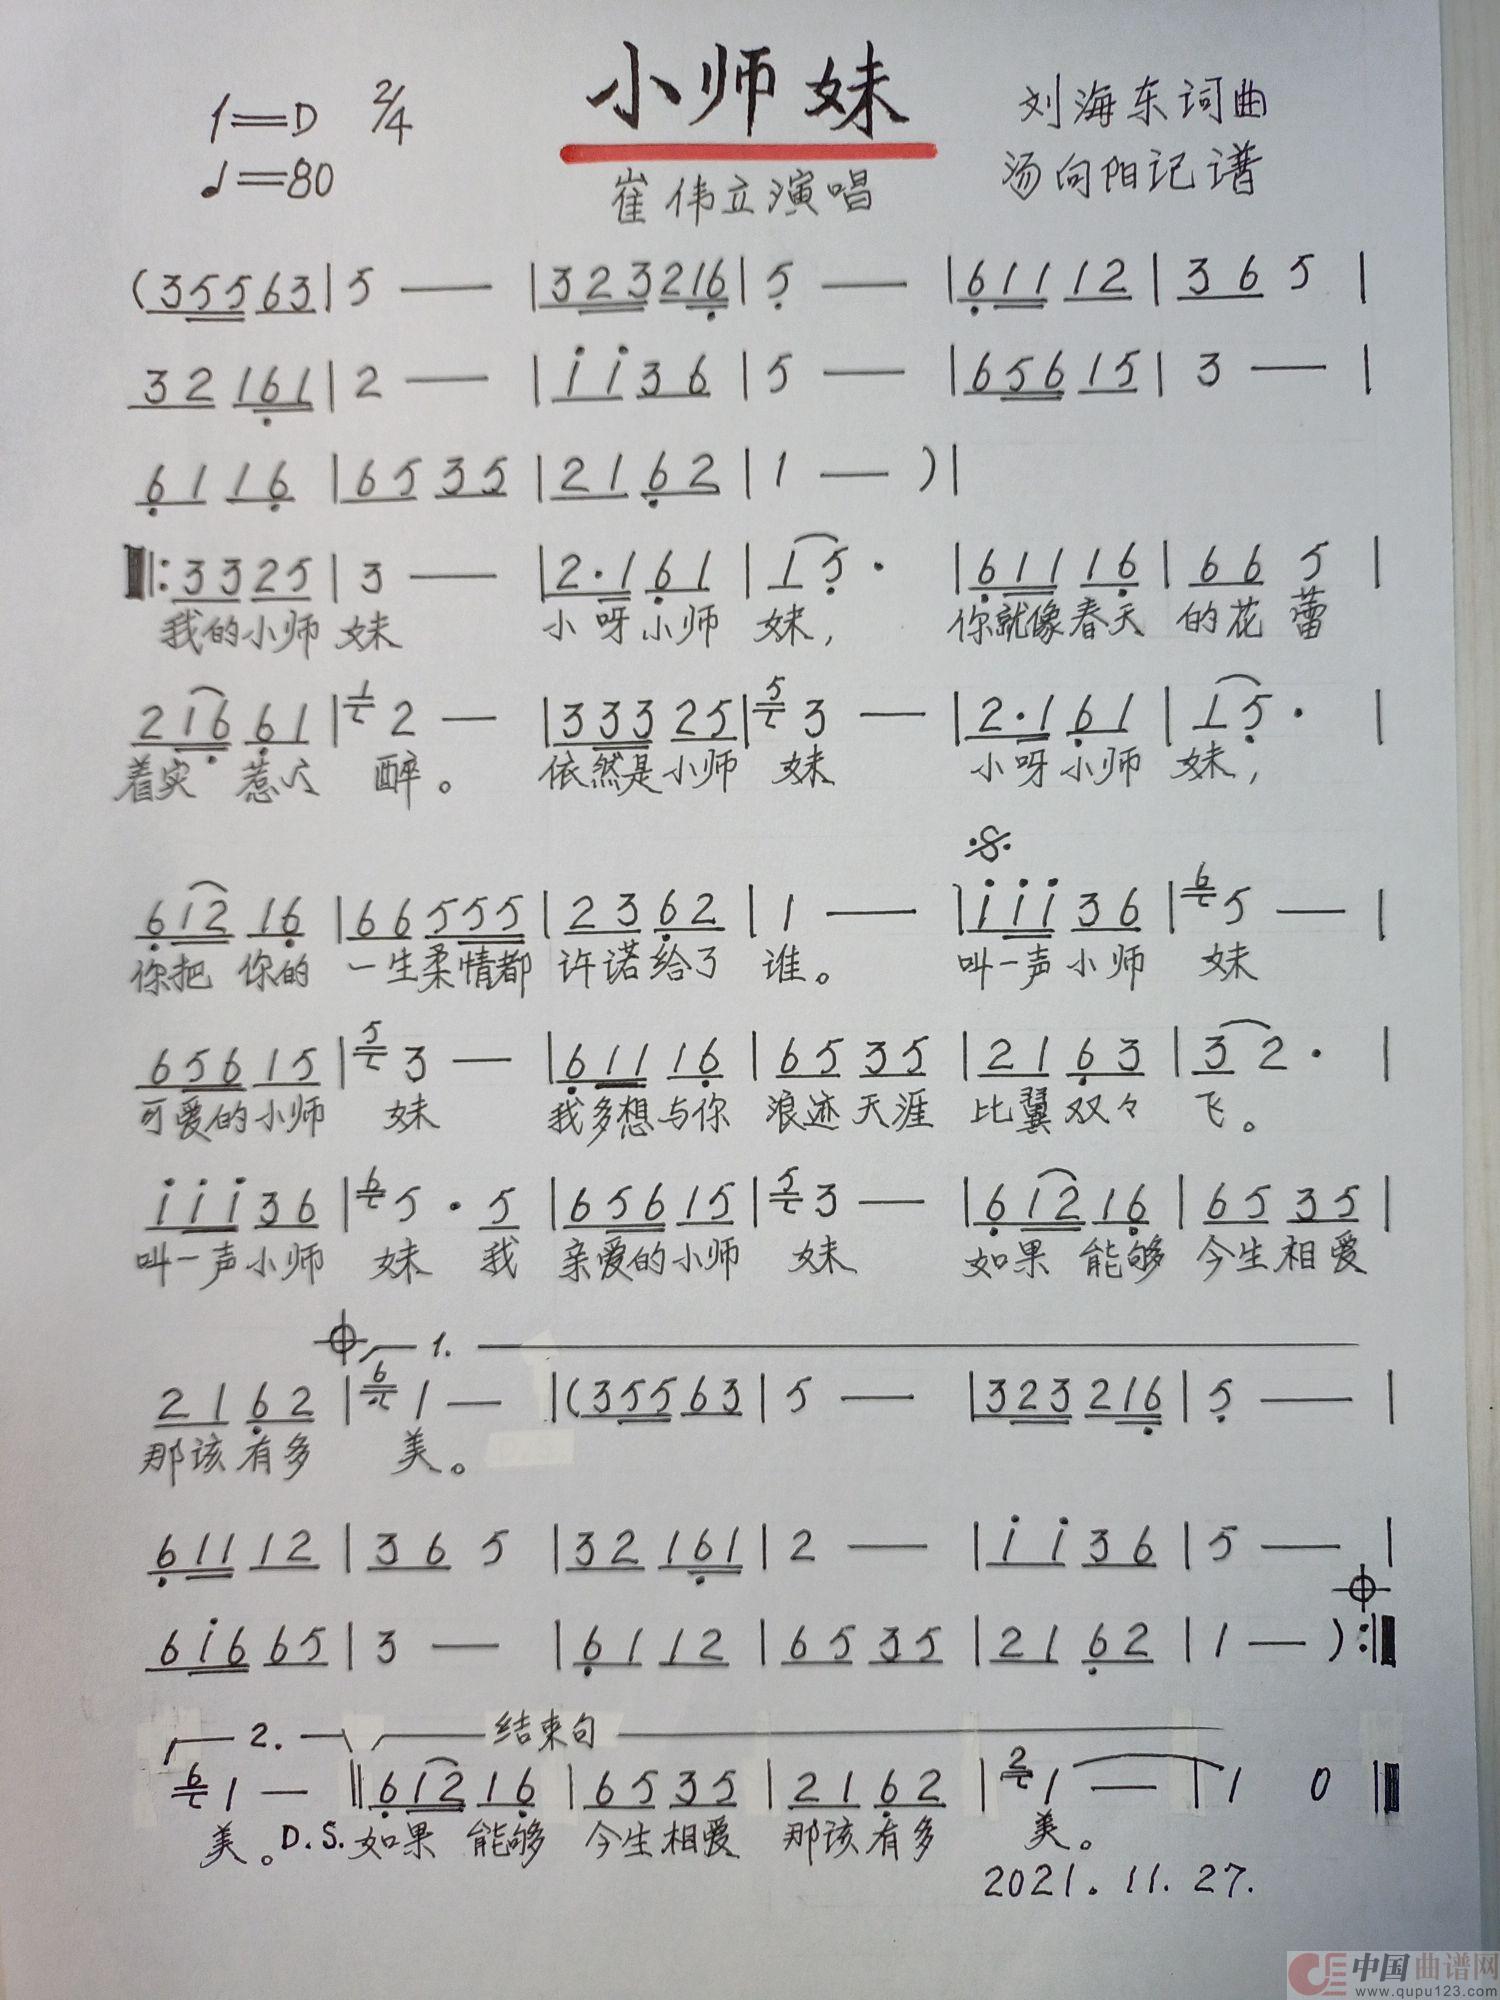 小师妹
1=D 2/4 刘海东词曲
♩=80 崔伟立演唱 汤向阳记谱
(35563|5 —|323216|5 —|61112|36 5|
32161|2 —|1136|5 —|65615|3 —|
6116|6535|2162|1 — )|
‖:3325|3 —|2·161|15·|61116|66 5|
我的小师妹 小呀小师妹, 你就像春天 的花蕾
21661|1 2 —|33325|5 3 —|2·161|15·|
着实 惹人 醉。 依然是小师 妹 小呀小师 妹,
𝄋
61216|66555|2362|1 —|11136|6 5 —|
你把 你的 一生柔情都 许诺给了 谁。 叫一声小师 妹
65615|5 3 —|61116|6535|2163|32·|
可爱的小师 妹 我多想与你 浪迹天涯 比翼双々 飞。
11136|6 5·5|65615|5 3 —|61216|6535|
叫一声小师 妹 我 亲爱的小师 妹 如果 能够 今生相爱
1.
2162|6 1 —|(35563|5 —|323216|5 —|
那该有多 美。
61112|36 5|32161|2 —|1136|5 —|
61665|3 —|6112|6535|2162|1 — ):‖
2. 结束句
6 1 —‖61216|6535|2162|2 1 —|1 0‖
美。D.S.如果 能够 今生相爱 那该有多 美。
2021.11.27.
中国曲谱网
www.qupu123.com